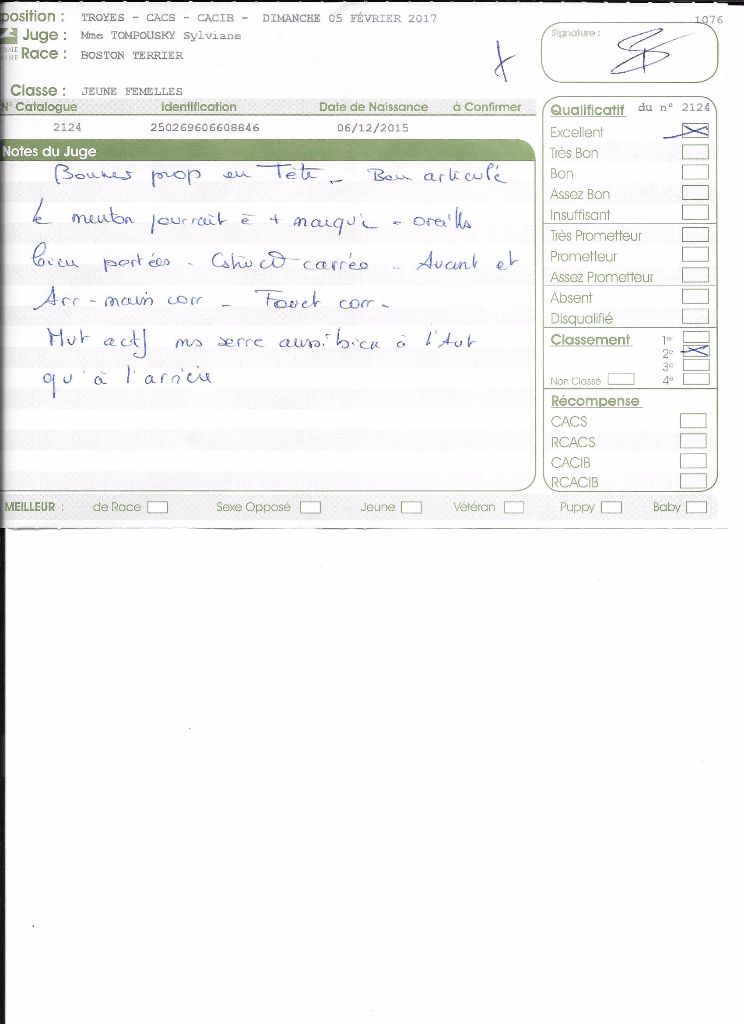 position : TROYES - CACS - CACIB - DIMANCHE 05 FÉVRIER 2017
1076
Juge : Mme TOMPOUSKY Sylviane
Race : BOSTON TERRIER
Signature :
Classe : JEUNE FEMELLES
N° Catalogue Identification Date de Naissance à Confirmer
2124 250269606608846 06/12/2015
Notes du Juge
Bonnes prop en Tête - Bon articulé
le menton pourrait ê + marqué - oreilles
bien portées - carrée - Avant et
Arr-main corr - Fouet corr -
Mvt actif ms serre aussi bien à l'Avt
qu'à l'arrière
Qualificatif du n° 2124
Excellent
Très Bon
Bon
Assez Bon
Insuffisant
Très Prometteur
Prometteur
Assez Prometteur
Absent
Disqualifié
Classement 1e
2e
3e
Non Classé 4e
Récompense
CACS
RCACS
CACIB
RCACIB
MEILLEUR : de Race Sexe Opposé Jeune Vétéran Puppy Baby